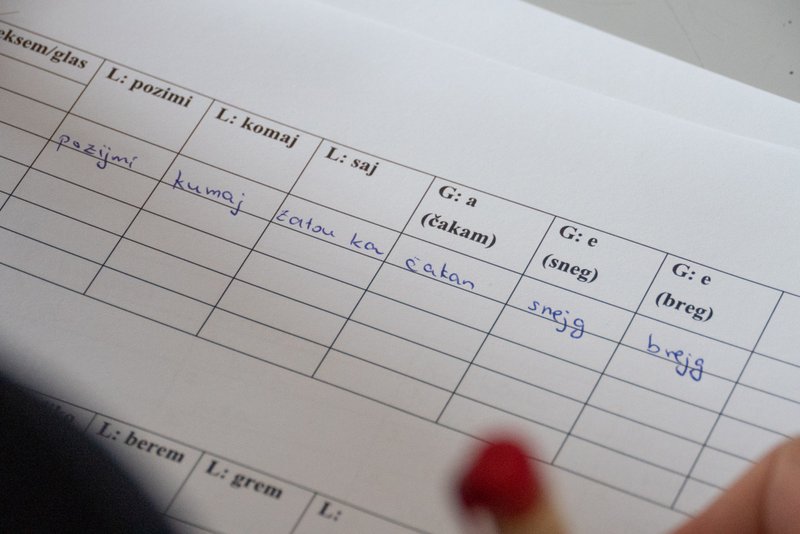 eksem/glas
L: pozimi
L: komaj
L: saj
G: a
(čakam)
G: e
(sneg)
G: e
(breg)
pozijmi
kumaj
zatou ka
čakan
snejg
brejg
L: berem
L: grem
L: